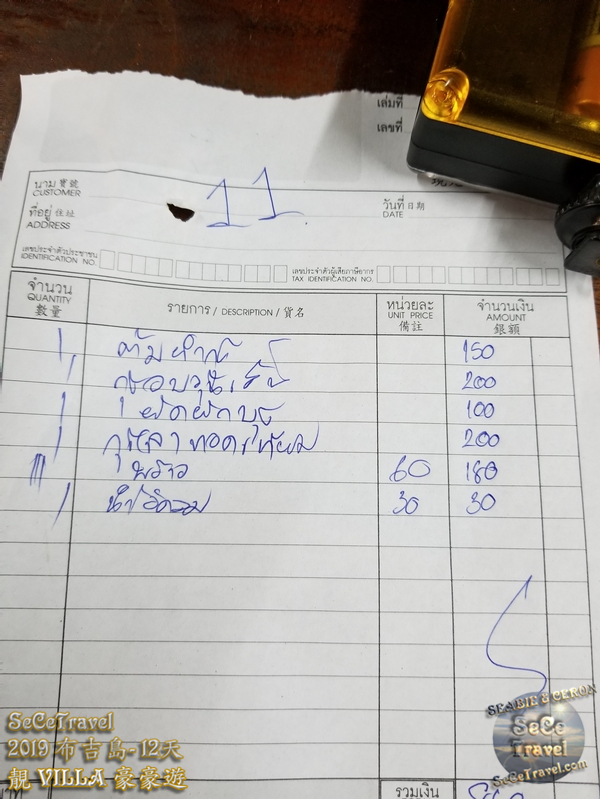 เล่มที่
เลขที่
นาม 寶號
CUSTOMER
11
วันที่ 日期
DATE
ที่อยู่ 住址
ADDRESS
เลขประจำตัวประชาชน
IDENTIFICATION NO.
เลขประจำตัวผู้เสียภาษีอากร
TAX IDENTIFICATION NO.
จำนวน
QUANTITY
數量
รายการ / DESCRIPTION / 貨名
หน่วยละ
UNIT PRICE
備註
จำนวนเงิน
AMOUNT
銀額
1 ต้มยำ 150
1 กุ้งอบวุ้นเส้น 200
1 ผัดผักบุ้ง 100
1 ทอดกระเทียม 200
III พร้าว 60 180
1 30 30
รวมเงิน
SeCeTravel
2019 布吉島-12天
靚 VILLA 豪豪遊
SEABIE & CERON
SeCe
Travel
SeCeTravel.com